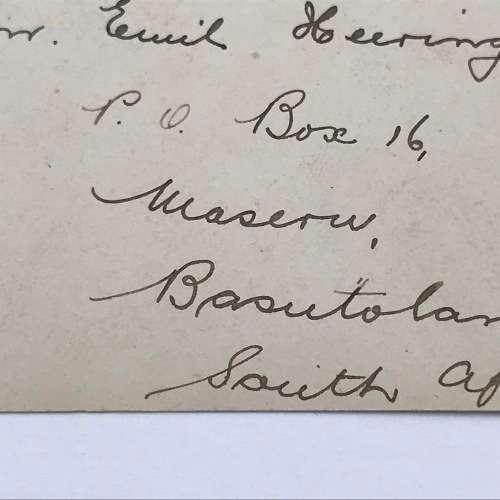 Mr. Emil Heering
P. O. Box 16,
Maseru,
Basutolan
South Af